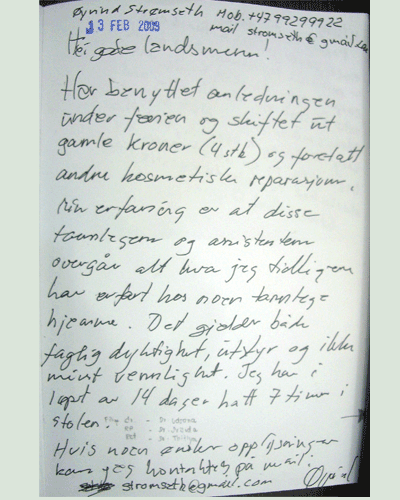 Øyvind Strømseth Mob. +47 99299922
13 FEB 2009 mail stromseth@gmail.com
Hei gode landsmenn!
Har benyttet anledningen
under ferien og skiftet ut
gamle kroner (4 stk) og foretatt
andre kosmetiske reparasjoner.
Min erfaring er at disse
tannlegene og assistentene
overgår alt hva jeg tidligere
har erfart hos noen tannlege
hjemme. Det gjelder både
faglig dyktighet, utstyr og ikke
minst vennlighet. Jeg har i
løpet av 14 dager hatt 7 timer i
stolen.
Hvis noen ønsker opplysninger
kan jeg kontaktes på mail:
stromseth@gmail.com Øyvind